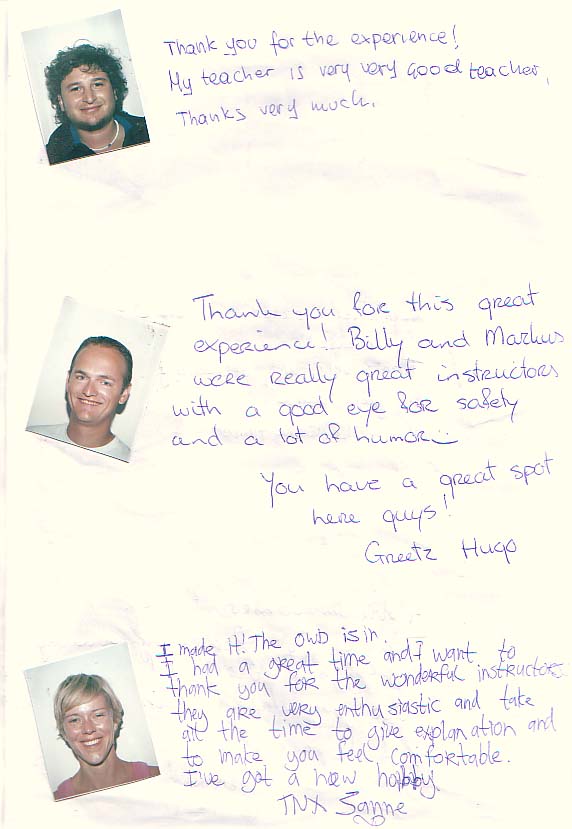 Thank you for the experience!
My teacher is very very good teacher,
Thanks very much.
Thank you for this great
experience! Billy and Markus
were really great instructors
with a good eye for safety
and a lot of humor
You have a great spot
here guys!
Greetz Hugo
I made it! The owd is in.
I had a great time and I want to
thank you for the wonderful instructors
they are very enthusiastic and take
all the time to give explanation and
to make you feel comfortable.
I've got a new hobby.
TNX Sanne